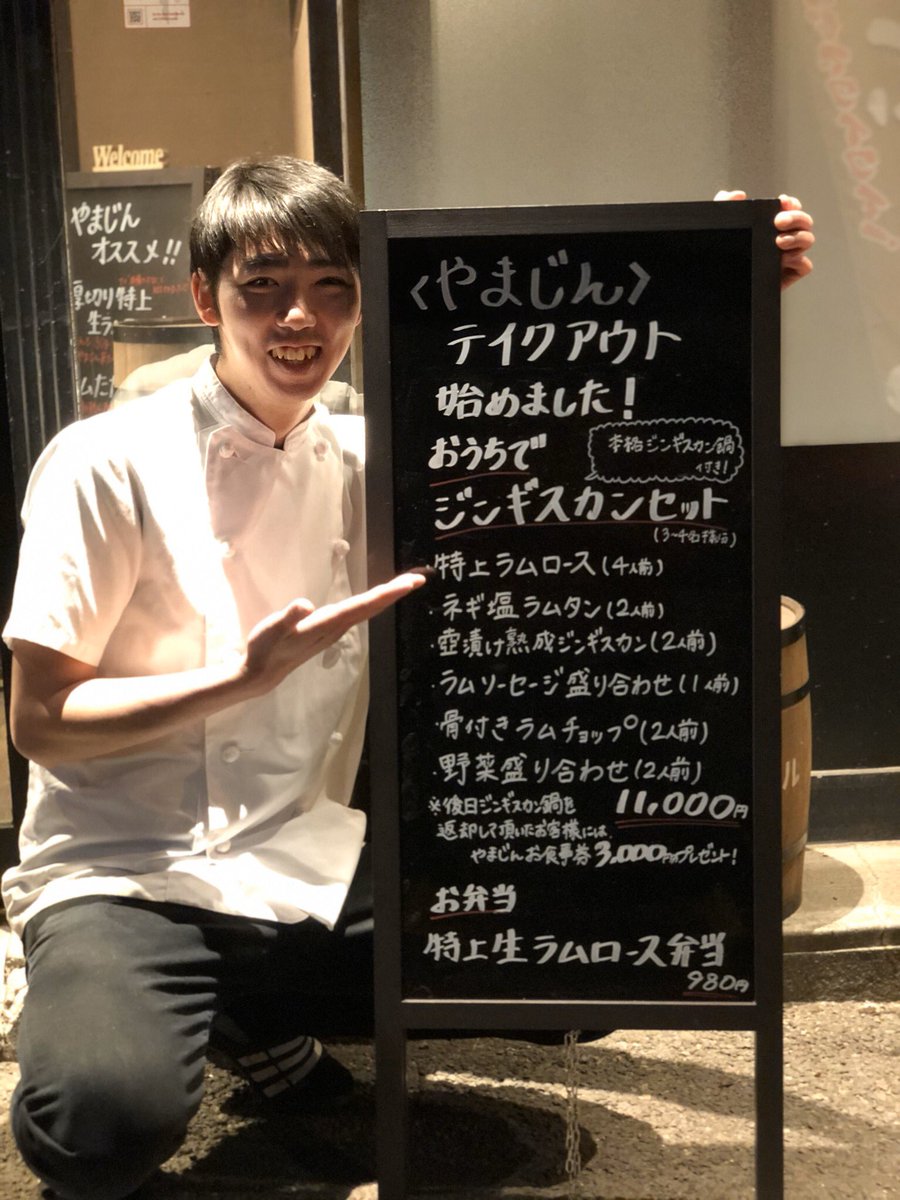 Welcome
やまじん
オススメ!!
厚切り特上
〈やまじん〉
テイクアウト
始めました!
おうちで
本格ジンギスカン鍋
付き!
ジンギスカンセット
(3〜4名様分)
・特上ラムロース(4人前)
・ネギ塩ラムタン(2人前)
・壺漬け熟成ジンギスカン(2人前)
・ラムソーセージ盛り合わせ(1人前)
・骨付きラムチョップ(2人前)
・野菜盛り合わせ(2人前)
11,000円
※後日ジンギスカン鍋を
返却して頂いたお客様には
やまじんお食事券3,000円分プレゼント!
お弁当
特上生ラムロース弁当
980円
ル